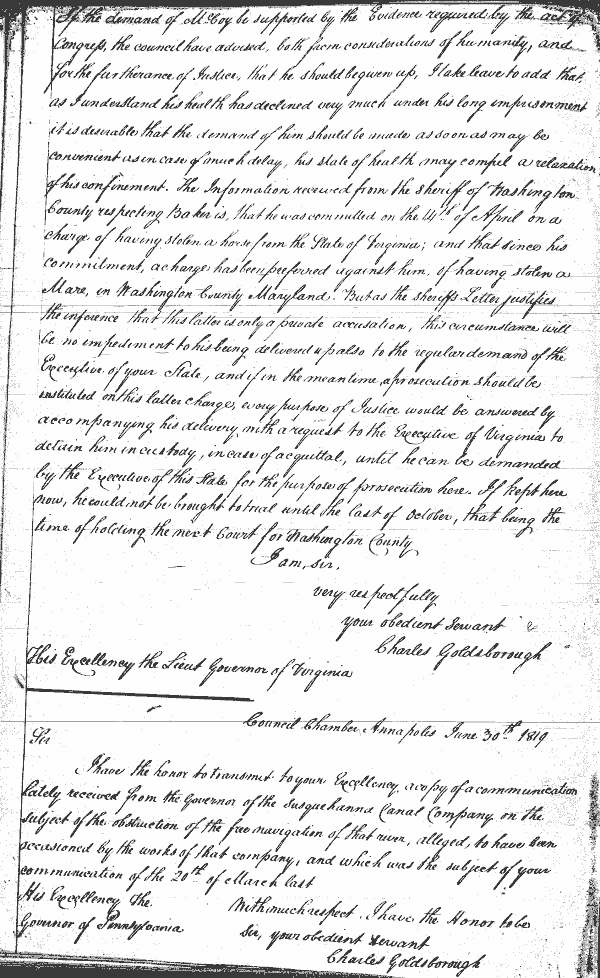 If the demand of McCoy be supported by the Evidence required by the act of
Congress, the council have advised, both from considerations of humanity, and
for the furtherance of Justice, that he should be given up, I take leave to add that,
as I understand his health has declined very much under his long imprisonment
it is desirable that the demand of him should be made as soon as may be
convenient as in case of much delay, his state of health may compel a relaxation
of his confinement. The Information received from the sheriff of Washington
County respecting Baker is, that he was committed on the 4th of April on a
charge of having stolen a horse from the State of Virginia; and that since his
commitment, a charge has been preferred against him, of having stolen a
Mare, in Washington County Maryland. But as the sheriffs Letter justifies
the inference that this latter is only a private accusation, this circumstance will
be no impediment to his being delivered up also to the regular demand of the
Executive of your State, and if in the meantime, a prosecution should be
instituted on this latter charge, every purpose of Justice would be answered by
accompanying his delivery with a request to the Executive of Virginia to
detain him in custody, in case of acquittal, until he can be demanded
by the Executive of this State for the purpose of prosecution here. If kept here
now, he could not be brought to trial until the last of October, that being the
time of holding the next Court for Washington County
I am, sir,
very respectfully
your obedient servant
Charles Goldsborough
His Excellency the Lieut Governor of Virginia
Council Chamber Annapolis June 30th 1819
Sir
I have the honor to transmit to your Excellency, a copy of a communication
lately received from the Governor of the Susquehanna Canal Company on the
subject of the obstruction of the free navigation of that river, alleged, to have been
occasioned by the works of that company, and which was the subject of your
communication of the 20th of March last
His Excellency the With much respect, I have the Honor to be
Governor of Pennsylvania Sir, your obedient servant
Charles Goldsborough